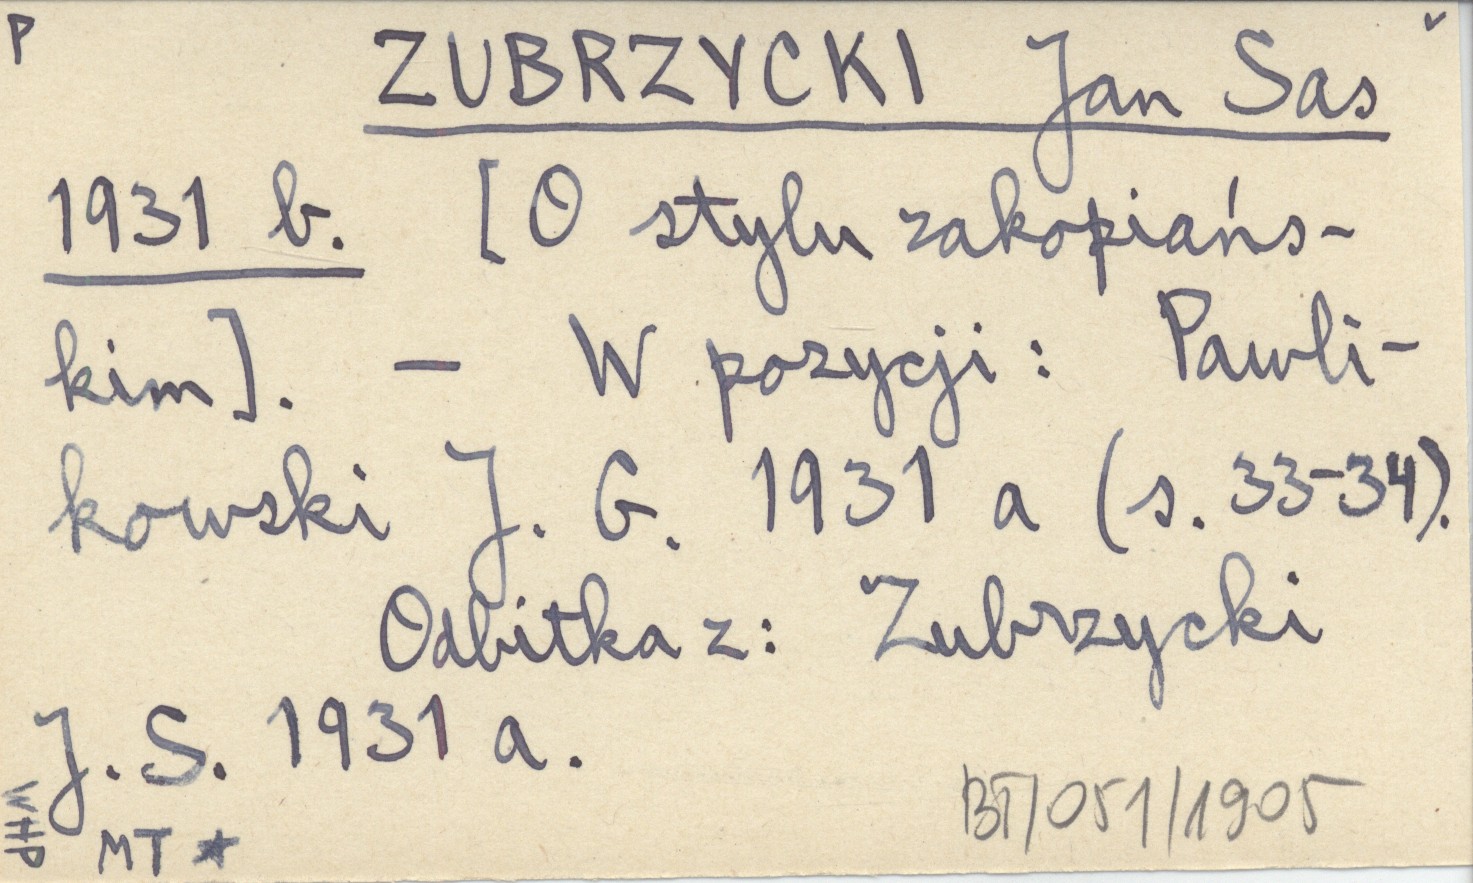 P
ZUBRZYCKI Jan Sas
1931 b. [O stylu zakopiańs-
kim]. – W pozycji: Pawli-
kowski J. G. 1931 a (s. 33-34).
Odbitka z: Zubrzycki
J. S. 1931 a.
WHP
MT ★
BT/051/1905